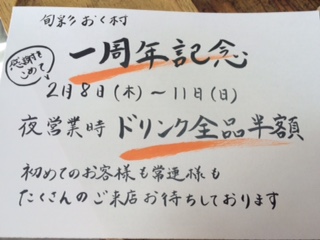 旬彩おく村
感謝をこめて
一周年記念
2月8日(木)～11日(日)
夜営業時 ドリンク全品半額
初めてのお客様も常連様も
たくさんのご来店お待ちしております